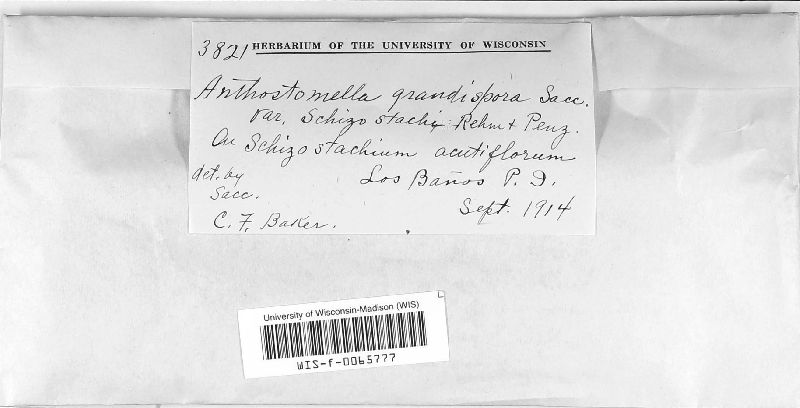 3821 HERBARIUM OF THE UNIVERSITY OF WISCONSIN
Anthostomella grandispora Sacc.
var. Schizostachyi Rehm & Penz.
On Schizostachium acutiflorum
det. by Los Baños P. I.
Sacc. Sept. 1914
C. F. Baker.
University of Wisconsin-Madison (WIS)
WIS-f-0065777